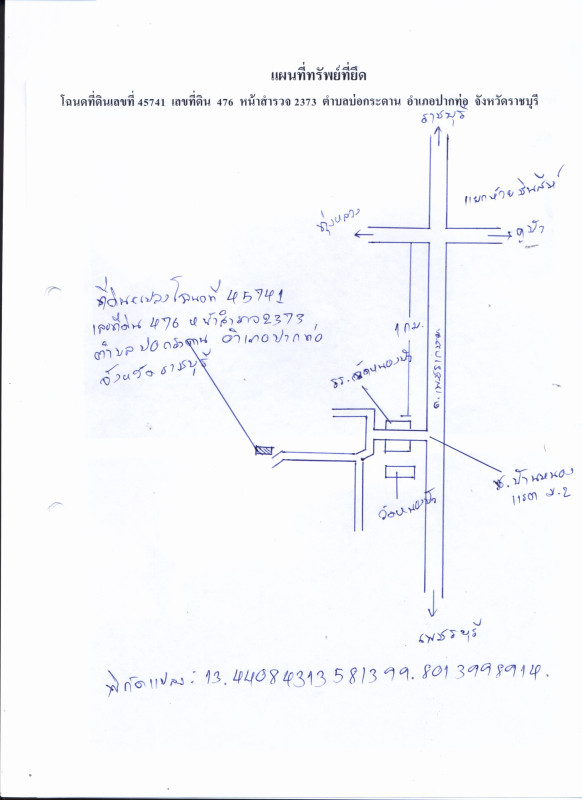 แผนที่ทรัพย์ที่ยึด
โฉนดที่ดินเลขที่ 45741 เลขที่ดิน 476 หน้าสำรวจ 2373 ตำบลบ่อกระดาน อำเภอปากท่อ จังหวัดราชบุรี
ราชบุรี
แยกห้วยชินสีห์
ทุ่งหลวง
คูบัว
ที่ดินแปลงโฉนดที่ 45741
เลขที่ดิน 476 หน้าสำรวจ 2373
ตำบลบ่อกระดาน อำเภอปากท่อ
จังหวัดราชบุรี
1 กม.
ถ.เพชรเกษม
รร.วัดหนองบัว
ซ.บ้านหนอง
ม.2
วัดหนองบัว
เพชรบุรี
พิกัดแปลง: 13.44084313581399.8013998914.